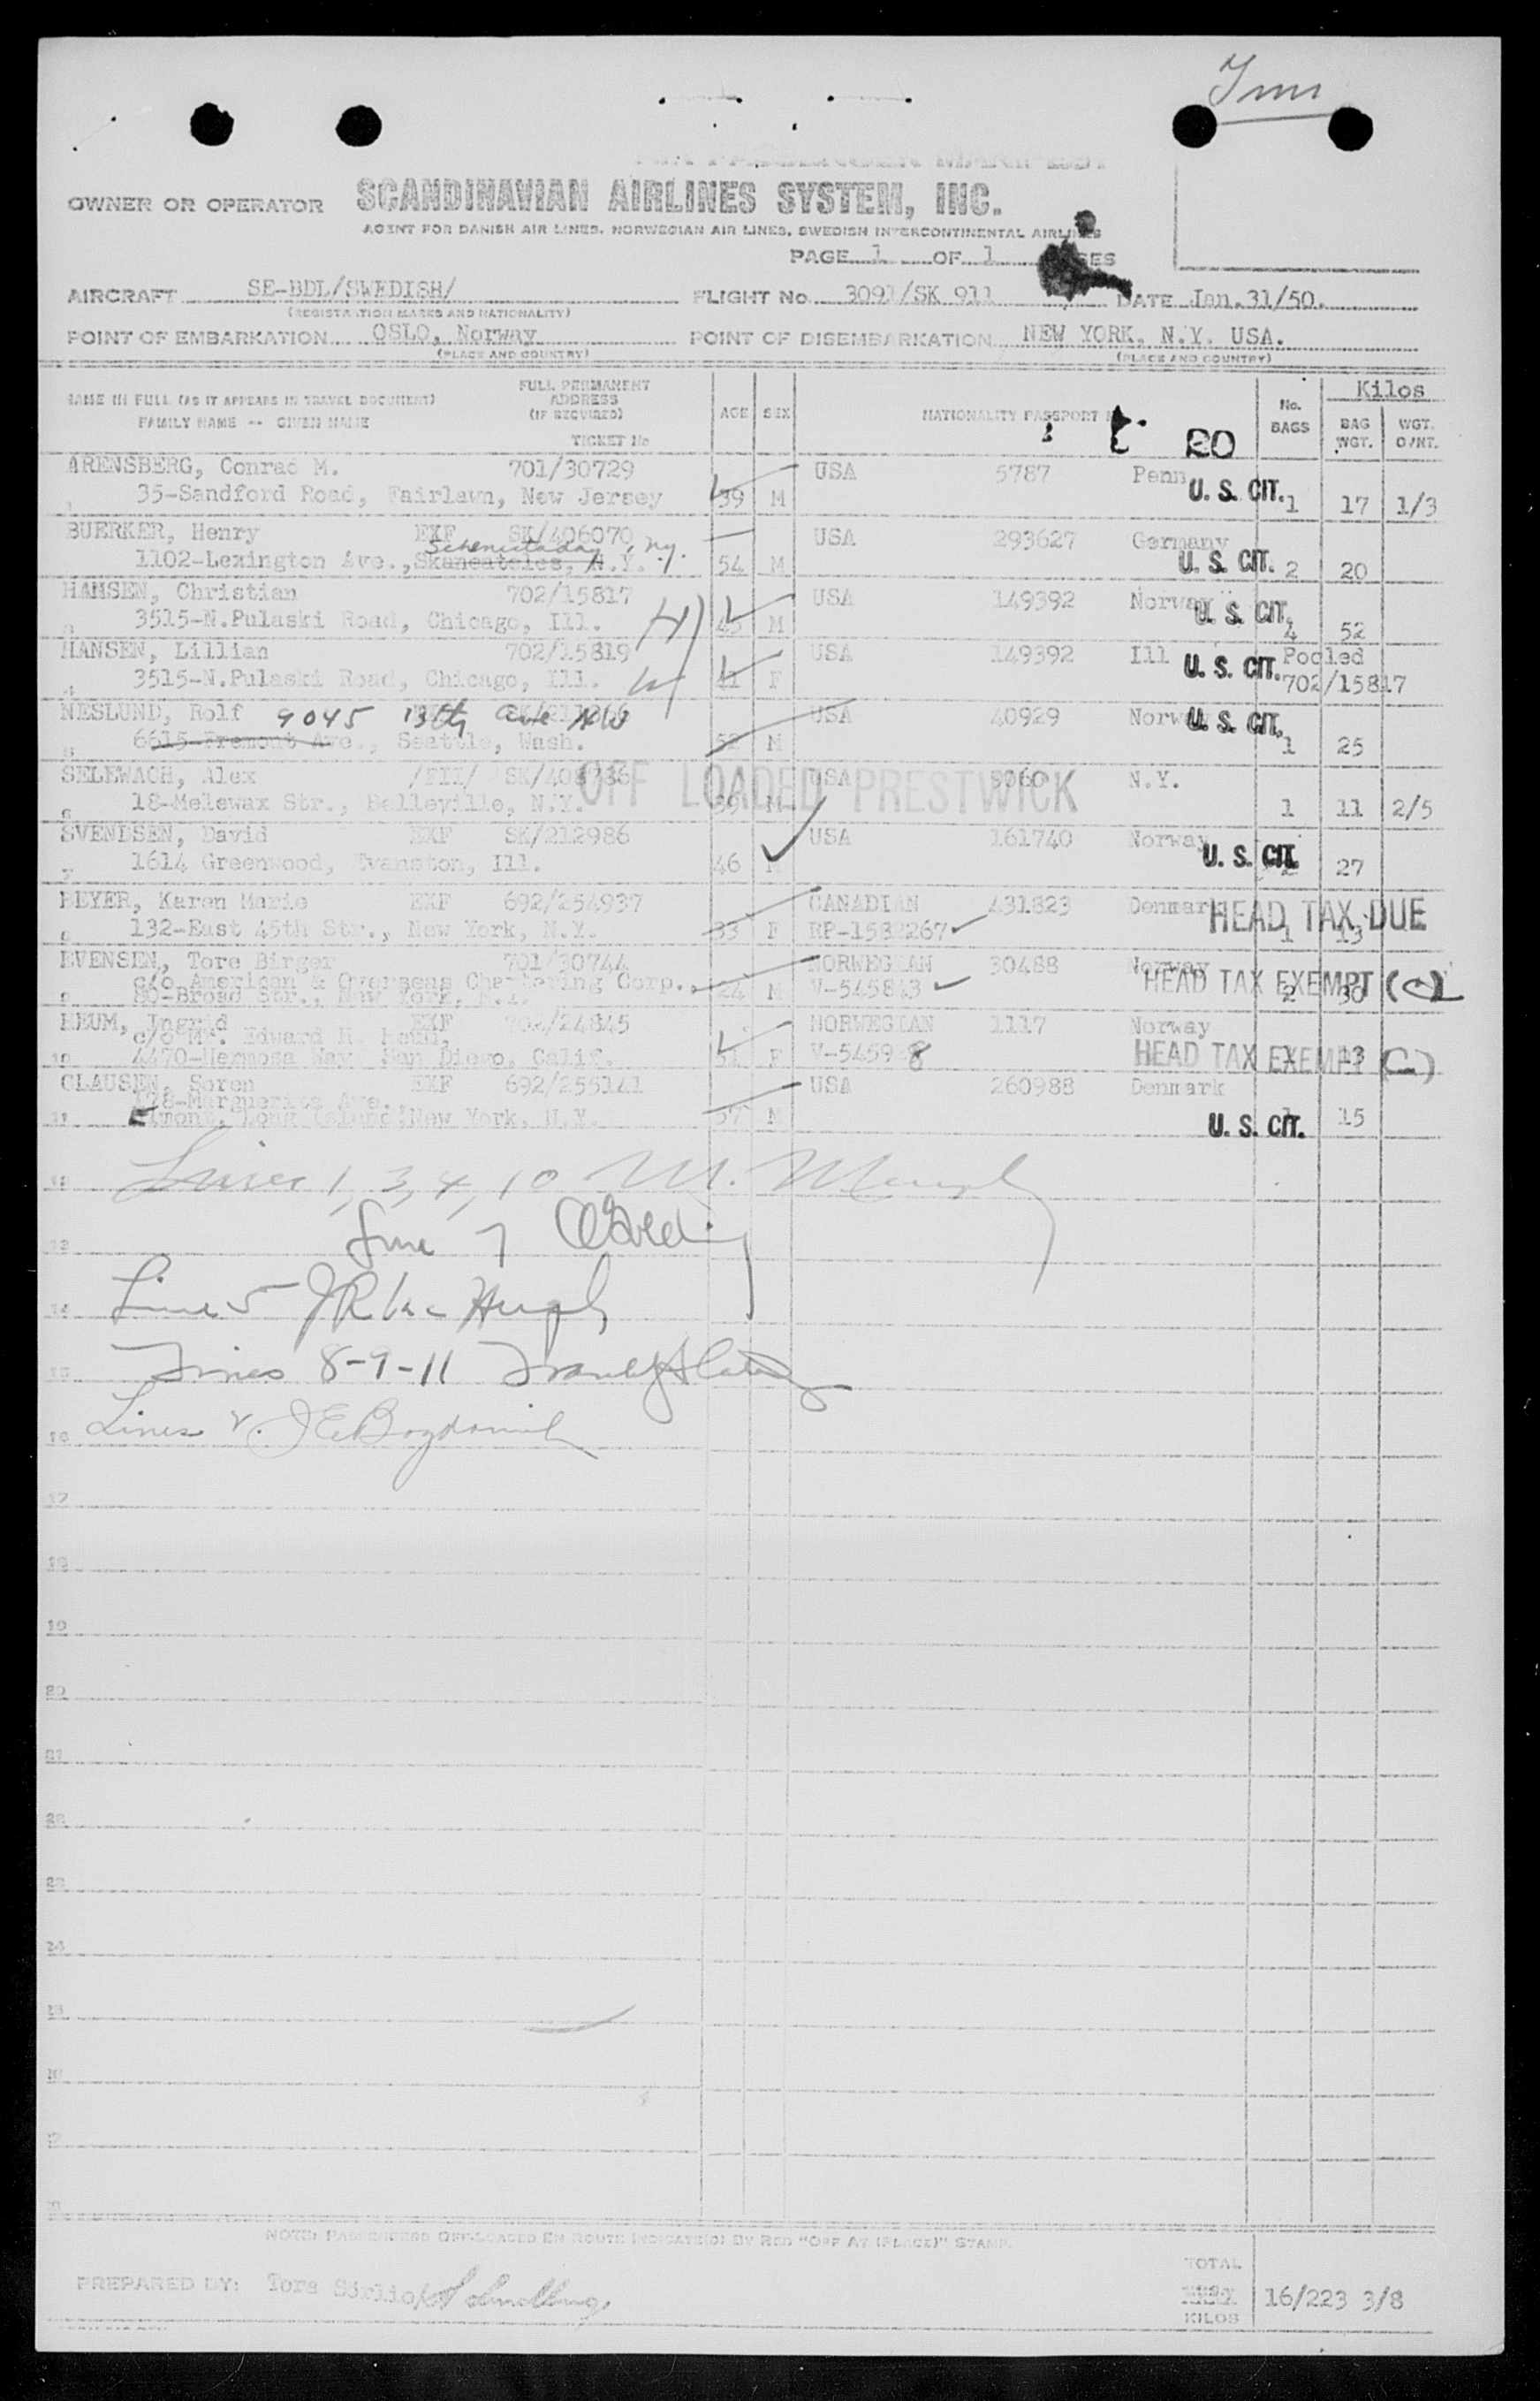 Imm
OWNER OR OPERATOR SCANDINAVIAN AIRLINES SYSTEM, INC.
AGENT FOR DANISH AIR LINES, NORWEGIAN AIR LINES, SWEDISH INTERCONTINENTAL AIRLINES
PAGE 1 OF 1
AIRCRAFT SE-BDL/SWEDISH/ FLIGHT No. 3091/SK 911 DATE Jan.31/50.
(REGISTRATION MARKS AND NATIONALITY)
POINT OF EMBARKATION OSLO, Norway POINT OF DISEMBARKATION NEW YORK. N.Y. USA.
(PLACE AND COUNTRY) (PLACE AND COUNTRY)
NAME IN FULL (AS IT APPEARS IN TRAVEL DOCUMENT) FULL PERMANENT ADDRESS (IF REQUIRED) AGE SEX NATIONALITY PASSPORT No. BAGS Kilos
FAMILY NAME -- GIVEN NAME TICKET No BAG WGT. WGT. O/HT.
20
ARENSBERG, Conrad M. 701/30729 USA 5787 Penn
1 35-Sandford Road, Fairlawn, New Jersey 39 M U. S. CIT. 1 17 1/3
BUERKER, Henry EXF SK/406070 USA 293627 Germany
Schenectady, N.Y.
1102-Lexington Ave., Skaneateles, N.Y. 54 M U. S. CIT. 2 20
HANSEN, Christian 702/15817 USA 149392 Norway
3 3515-N.Pulaski Road, Chicago, Ill. H 45 M U. S. CIT. 4 52
HANSEN, Lillian 702/15819 USA 149392 Ill Pooled
4 3515-N.Pulaski Road, Chicago, Ill. W 41 F U. S. CIT. 702/15817
NESLUND, Rolf 9045 13th Ave NW USA 40929 Norway U. S. CIT.
6615-Fremont Ave., Seattle, Wash. 52 M 1 25
SELEWACH, Alex USA N.Y.
OFF LOADED PRESTWICK
6 18-Melewax Str., Belleville, N.Y. 59 M 1 11 2/5
SVENDSEN, David EXF SK/212986 USA 161740 Norway
7 1614 Greenwood, Evanston, Ill. 46 M U. S. CIT. 2 27
BEYER, Karen Marie EXF 692/254937 CANADIAN 431823 Denmark HEAD TAX DUE
132-East 45th Str., New York, N.Y. 33 F RP-1582267 1 13
EVENSEN, Tore Birger 701/30744 NORWEGIAN 30488 Norway
c/o American & Overseas Chartering Corp., HEAD TAX EXEMPT (C)
80-Broad Str., New York, N.Y. 24 M V-545843 2 30
HEUM, Ingrid EXF 702/24845 NORWEGIAN 1117 Norway
c/o Mr. Edward R. Heum,
10 4470-Hermosa Way San Diego, Calif. 51 F HEAD TAX EXEMPT (C) 1 13
CLAUSEN, Soren EXF 692/255141 USA 260988 Denmark
178-Marguerite Ave.,
11 Elmont, Long Island, New York, N.Y. 57 M U. S. CIT. 15
Lines 1, 3, 4, 10 M. Murphy
12
Line 7
14 Line 5
15 Lines 8-9-11
16 Lines 2.
17
18
19
20
21
22
23
24
25
NOTE: PASSENGERS OFF-LOADED EN ROUTE INDICATED BY RED "OFF AT (PLACE)" STAMP.
PREPARED BY: Tore
TOTAL
KILOS 16/223 3/8